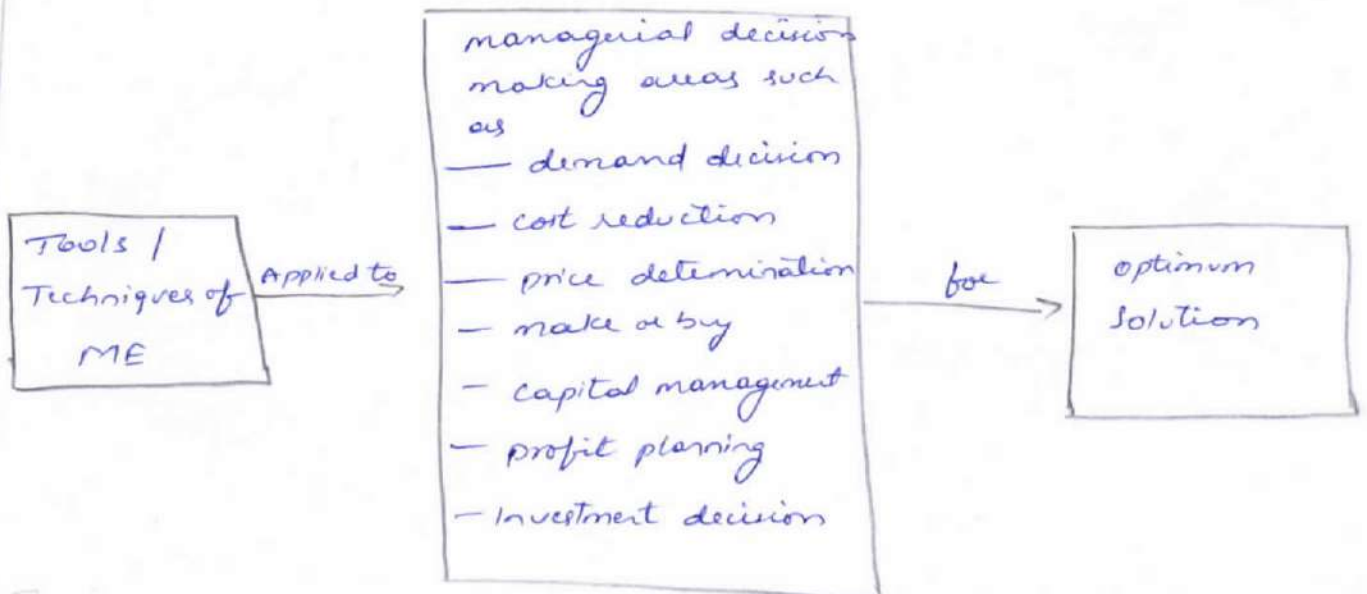 Tools /
Techniques of
ME
Applied to
managerial decision
making areas such
as
— demand decision
— cost reduction
— price detemination
— make or buy
— capital management
— profit planning
— Investment decision
for
optimum
solution